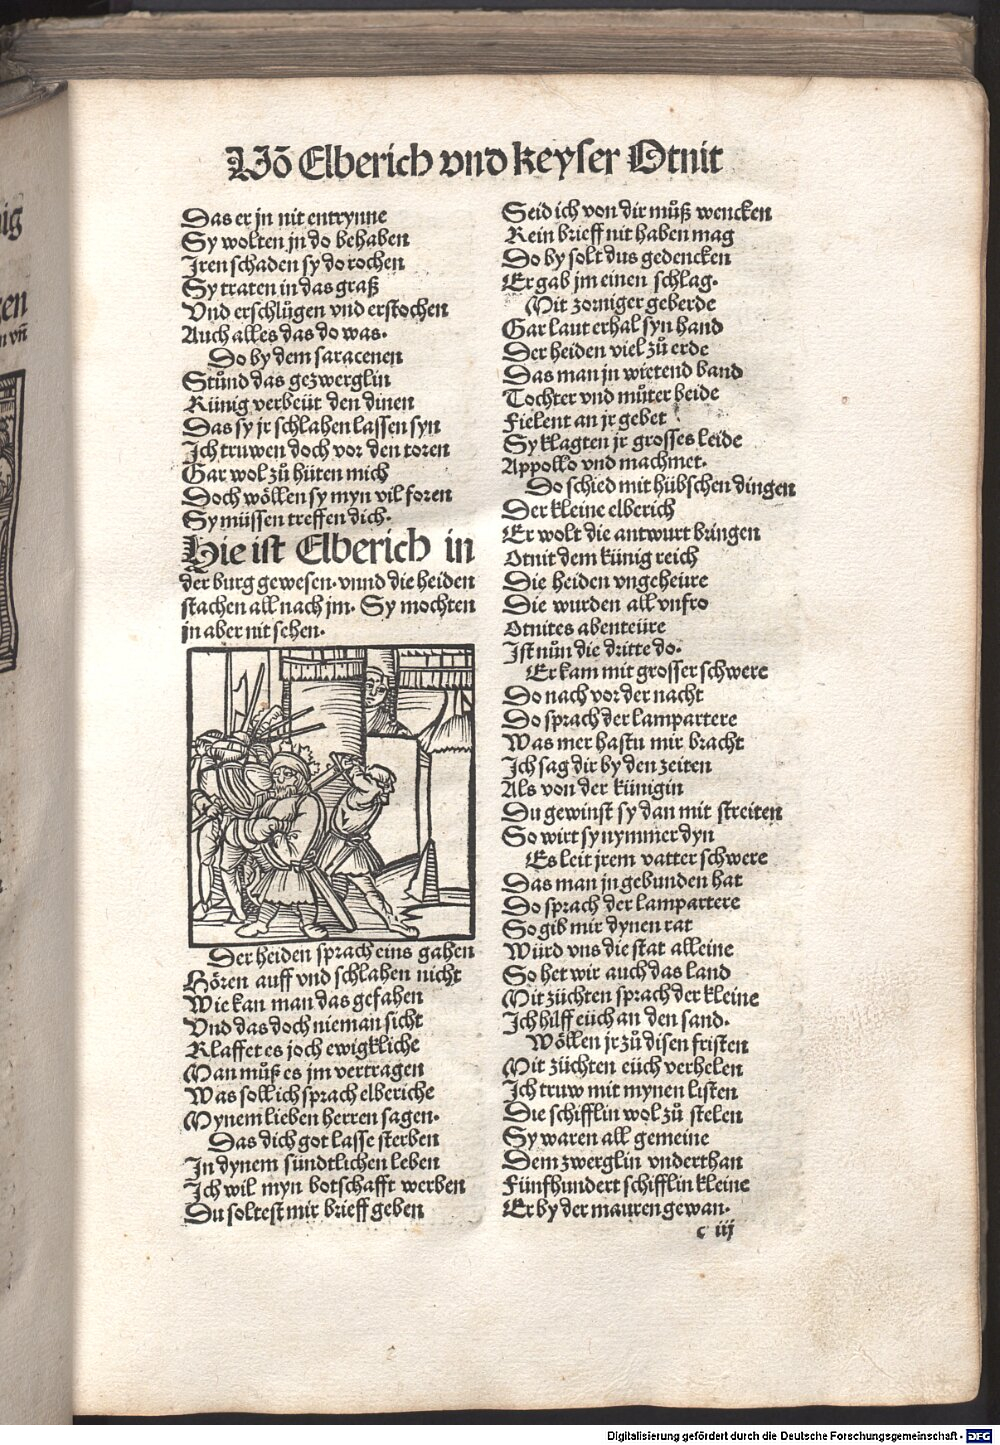 Võ Elberich vnd keyser Otnit
Das er jn nit entrynne
Sy wolten jn do behaben
Jren schaden sy do rochen
Sy traten in das graß
Vnd erschlůgen vnd erstochen
Auch alles das do was.
Do by dem saracenen
Stůnd das gezwerglin
Künig verbeüt den dinen
Das sy jr schlahen lassen syn
Jch truwen doch vor den toren
Gar wol zů hüten mich
Doch wöllen sy myn vil foren
Sy müssen treffen dich.
Hie ist Elberich in
der burg gewesen. vnnd die heiden
stachen all nach jm. Sy mochten
jn aber nit sehen.
Der heiden sprach eins gahen
Hören auff vnd schlahen nicht
Wie kan man das gefahen
Vnd das doch nieman sicht
Klaffet es joch ewigkliche
Man můß es jm vertragen
Was soll ich sprach elberiche
Mynem lieben herren sagen.
Das dich got lasse sterben
Jn dynem sündtlichen leben
Jch wil myn botschafft werben
Du soltest mir brieff geben
Seid ich von dir můß wencken
Kein brieff nit haben mag
Do by solt dus gedencken
Er gab jm einen schlag.
Mit zorniger geberde
Gar laut erhal syn hand
Der heiden viel zů erde
Das man jn wietend band
Tochter vnd můter beide
Fielent an jr gebet
Sy klagten jr grosses leide
Appollo vnd machmet.
Do schied mit hübschen dingen
Der kleine elberich
Er wolt die antwurt bringen
Otnit dem künig reich
Die heiden vngeheüre
Die wurden all vnfro
Otnites abenteüre
Jst nůn die dritte do.
Er kam mit grosser schwere
Do nach vor der nacht
Do sprach der lampartere
Was mer hastu mir bracht
Jch sag dir by den zeiten
Als von der künigin
Du gewinst sy dan mit streiten
So wirt sy nymmer dyn
Es leit jrem vatter schwere
Das man jn gebunden hat
Do sprach der lampartere
So gib mir dynen rat
Würd vns die stat alleine
So het wir auch das land
Mit züchten sprach der kleine
Jch hilff eüch an den sand.
Wöllen jr zů disen fristen
Mit züchten eüch verhelen
Jch truw mit mynen listen
Die schifflin wol zů stelen
Sy waren all gemeine
Dem zwerglin vnderthan
Fünfhundert schifflin kleine
Er by der mauren gewan.
c iij
ig
en
n vñ
Digitalisierung gefördert durch die Deutsche Forschungsgemeinschaft - DFG